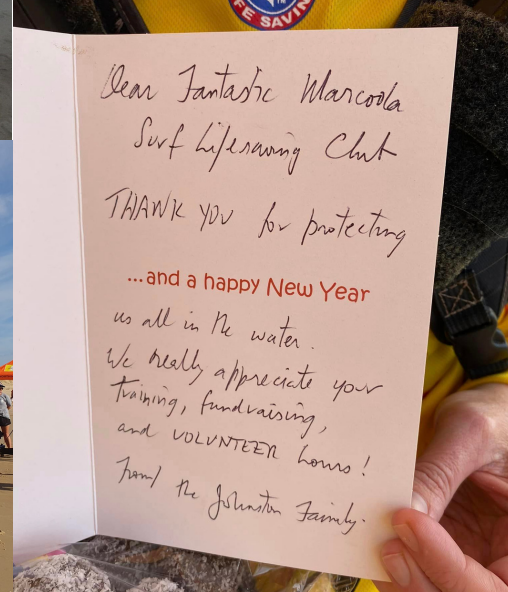 LIFE SAVIN
Dear Fantastic Marcoola
Surf Lifesaving Club
THANK YOU for protecting
...and a happy New Year
us all in the water.
We really appreciate your
training, fundraising,
and VOLUNTEER hours!
From the Johnston Family.